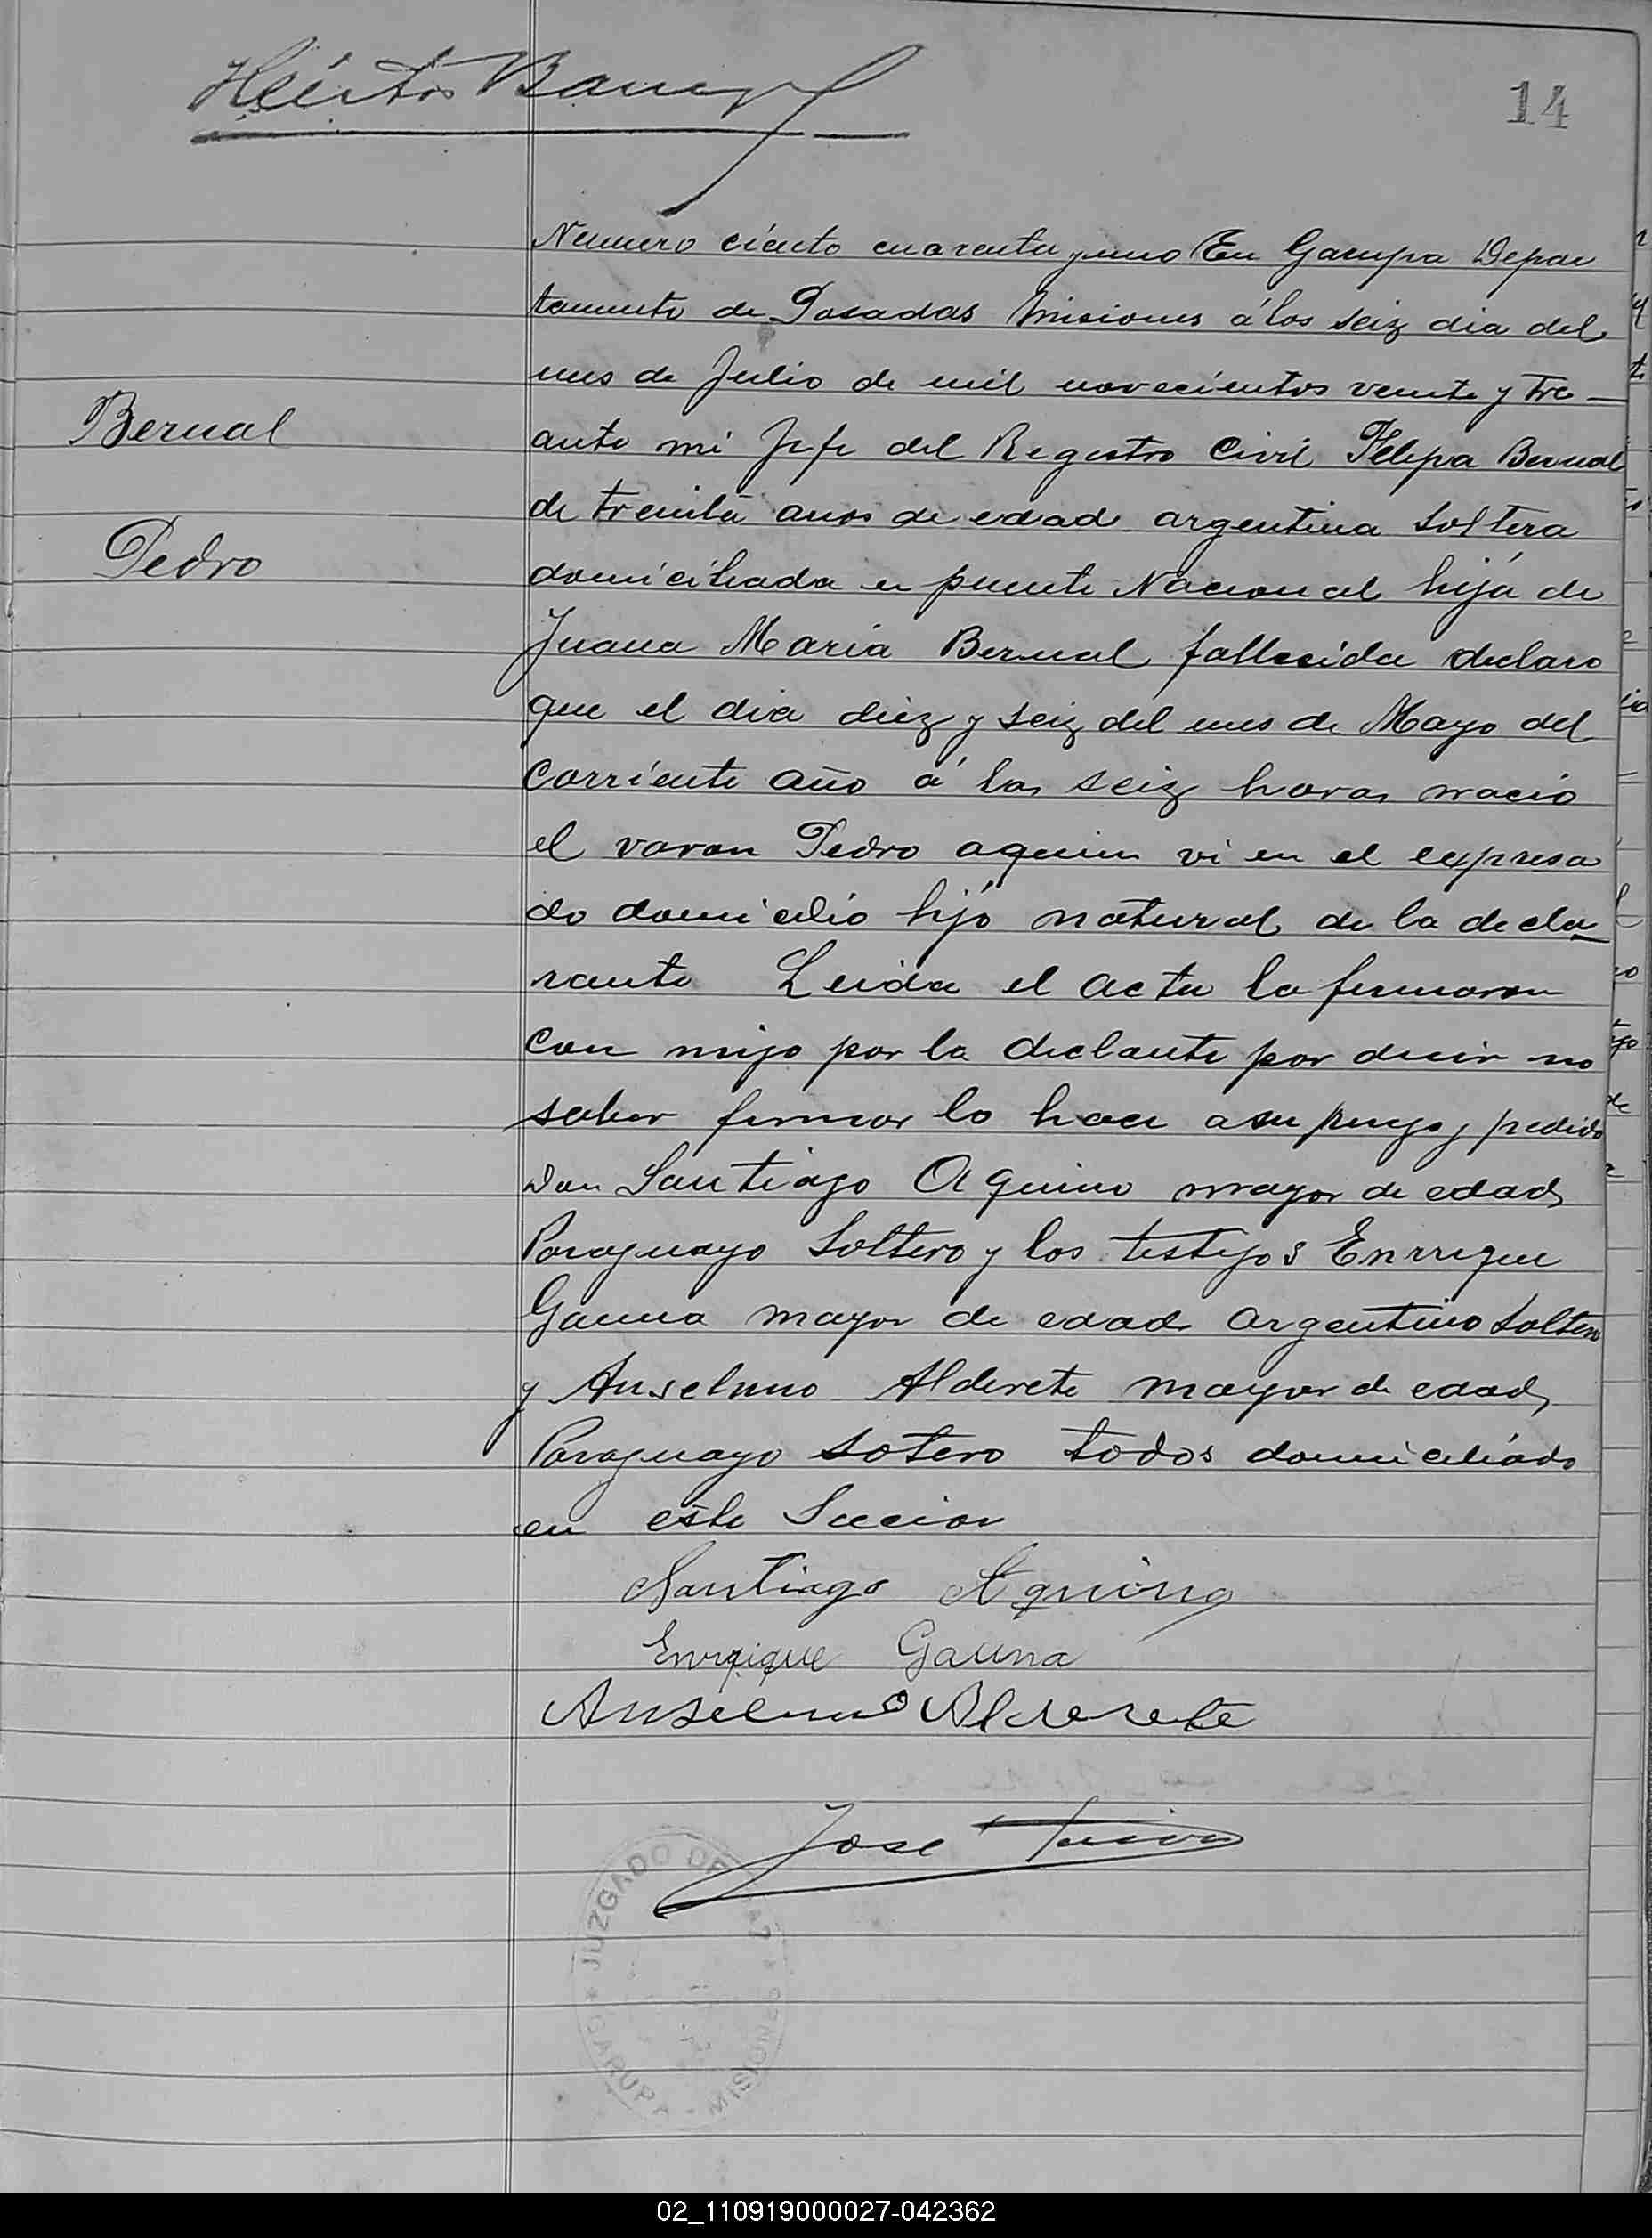 14
Numero ciento cuarenta y uno En Garupa Depar
tamento de Posadas Misiones á los seiz dia del
mes de Julio de mil novecientos veinte y tre
Bernal
ante mi Jefe del Registro Civil Felipa Bernal
de treinta anos de edad argentina soltera
Pedro
domiciliada en puente Nacional hija de
Juana Maria Bernal fallesida declaro
que el dia diez y seiz del mes de Mayo del
Corriente año á las seiz horas nació
el varon Pedro aquien vi en el expresa
do domicilio hijo natural de la decla
rante Leida el acta la firmaron
con migo por la declante por decir no
saber firmar lo hace a su ruego y pedido
Don Santiago Aquino mayor de edad
Paraguayo Soltero y los testigos Enrrique
Gauna mayor de edad argentino soltero
y Anselmo Alderete mayor de edad
Paraguayo sotero todos domiciliado
en este Seccion
Santiago Aquino
Enrrique Gauna
Anselmo Alderete
Jose
JUZGADO DE PAZ
GARUPA - MISIONES
02_110919000027-042362